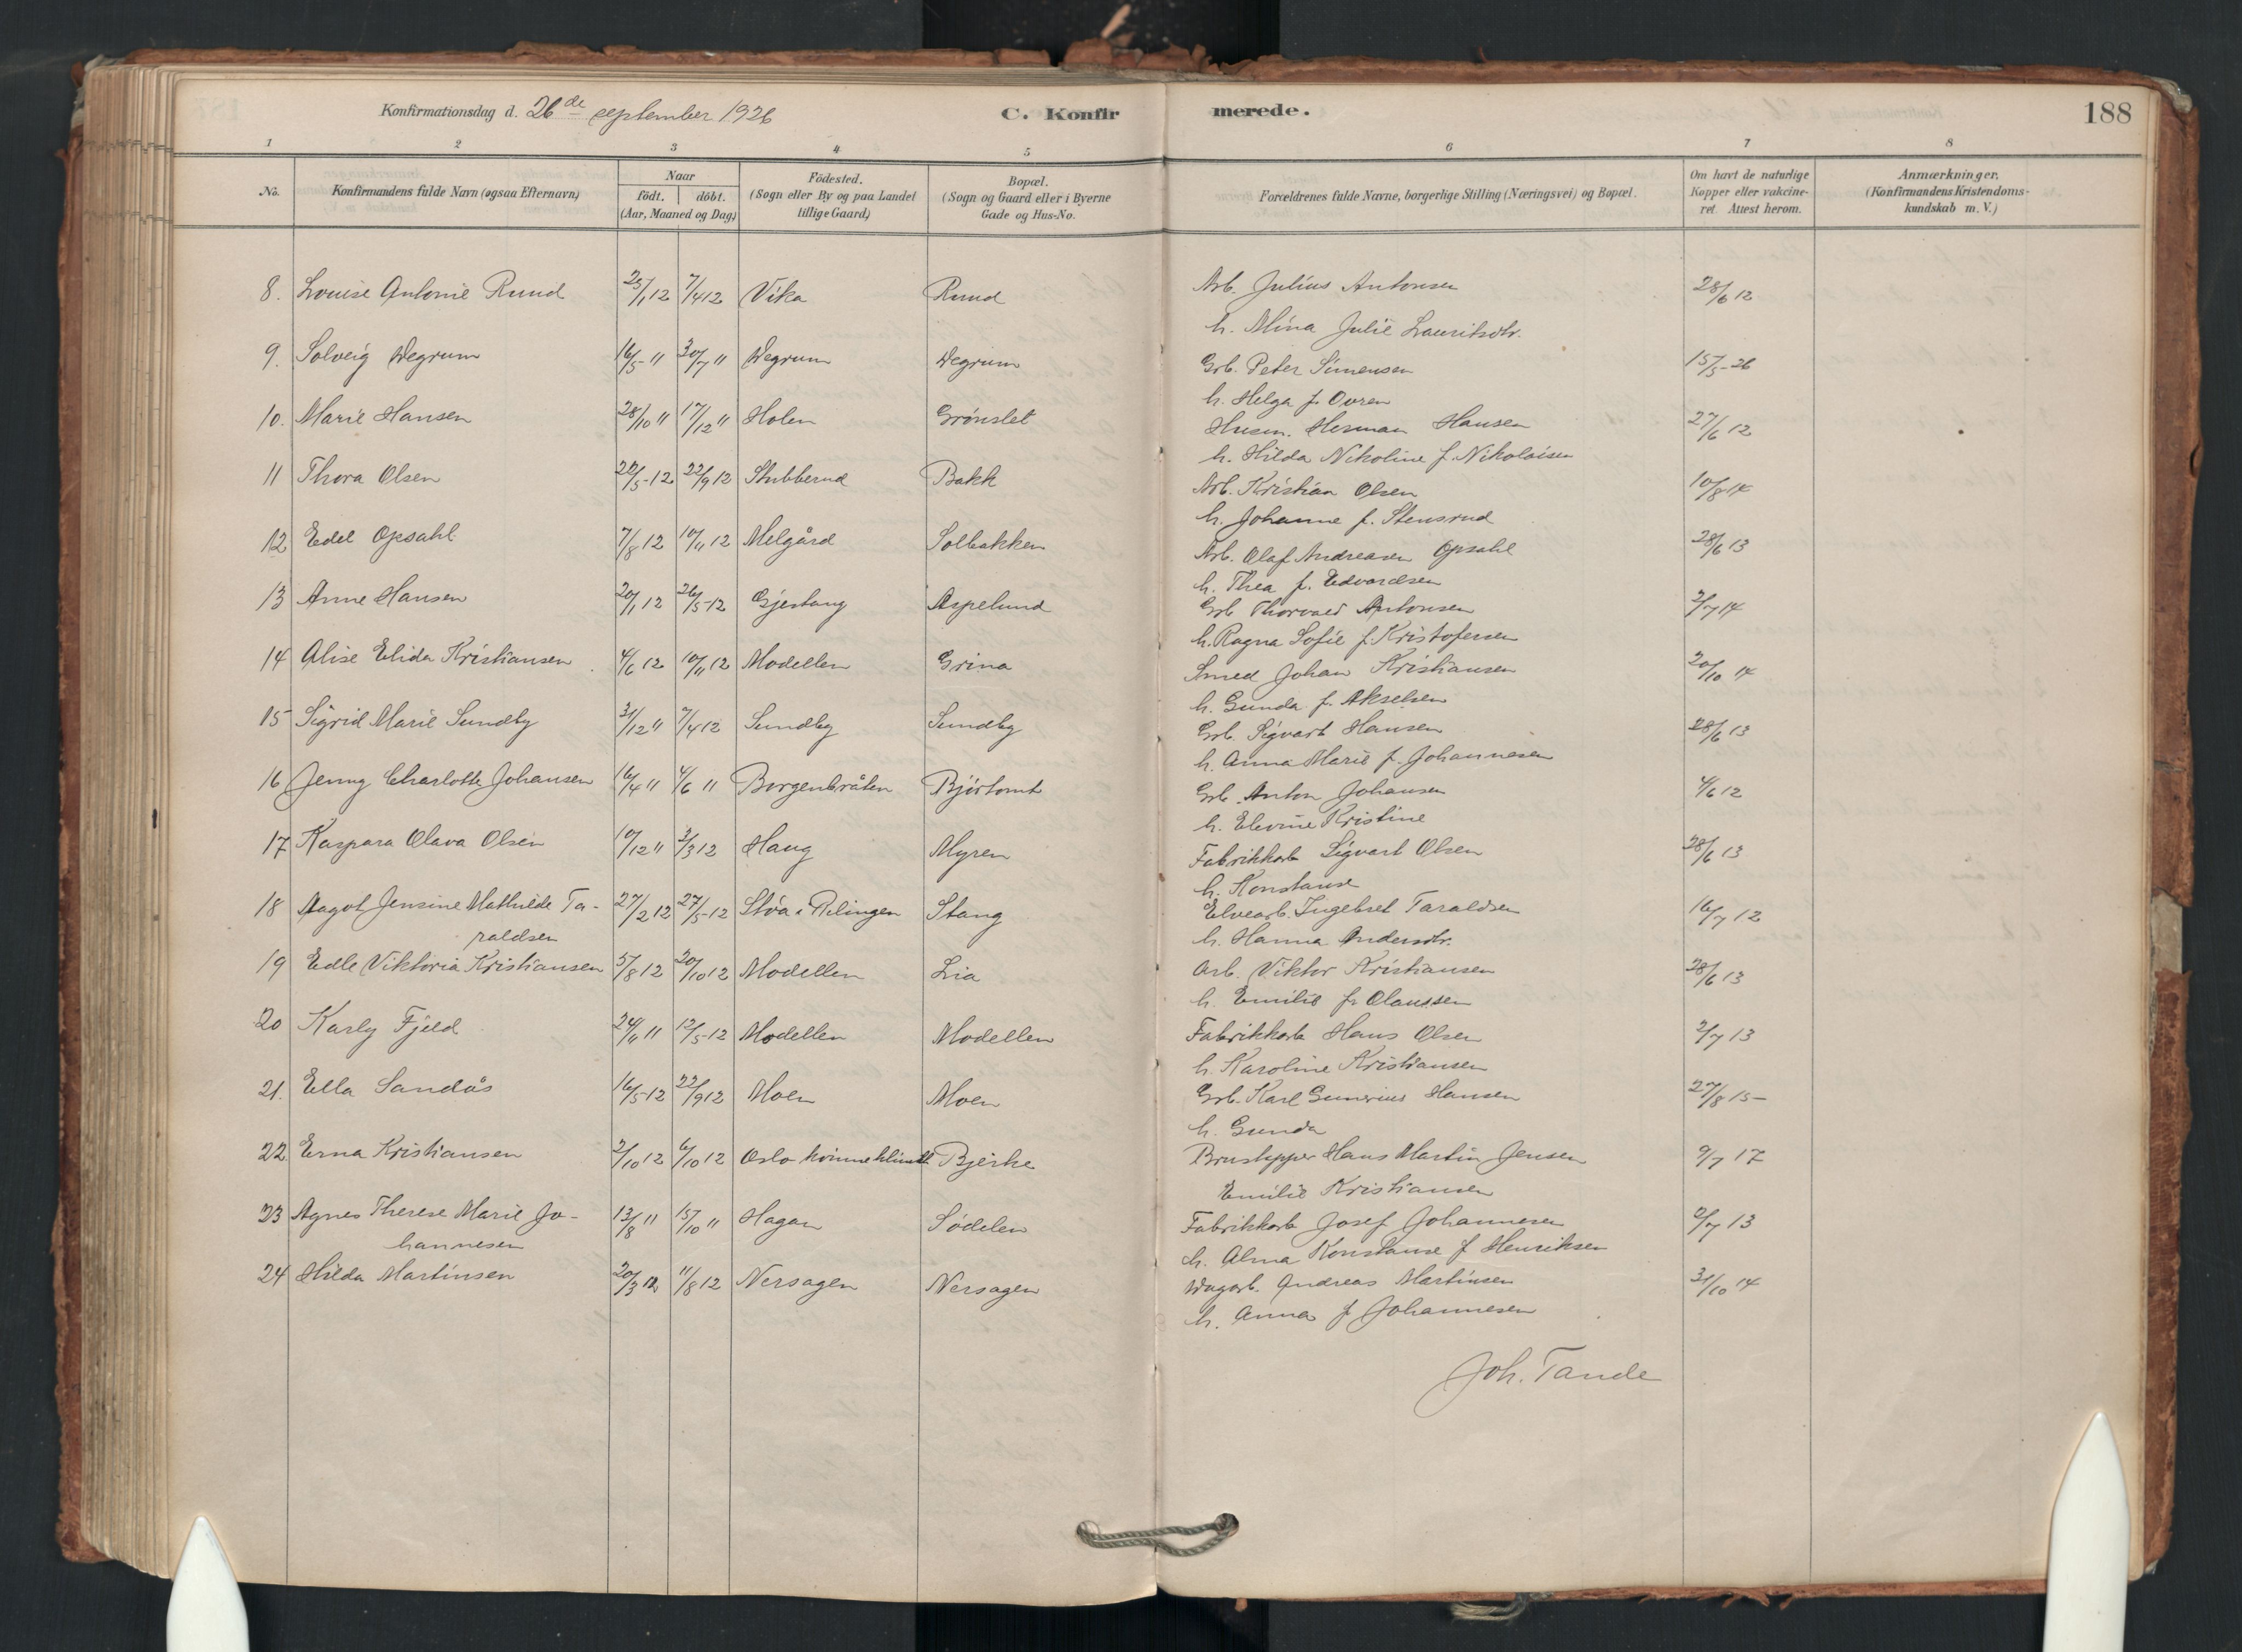 Konfirmationsdag d. 26de september 1926 C. Konfirmerede. 188
1 2 3 4 5 6 7 8
No. Konfirmandens fulde Navn (ogsaa Efternavn) Naar födt. döbt. (Aar, Maaned og Dag) Födested. (Sogn eller By og paa Landet tillige Gaard) Bopæl. (Sogn og Gaard eller i Byerne Gade og Hus-No. Forældrenes fulde Navne, borgerlige Stilling (Næringsvei) og Bopæl. Om havt de naturlige Kopper eller vakcineret. Attest herom. Anmærkninger. (Konfirmandens Kristendomskundskab m. V.)
8. Louise Antonie Rund 25/1 12 7/4 12 Vika Rund Arb. Julius Antonsen 28/6 12
h. Mina Julie Lauritsdtr.
9. Solveig Degrum 16/5 " 30/7 " Degrum Degrum Grb. Peter Simensen 15/5-26
h. Helga f. Ovren
10. Marie Hansen 28/10 " 17/12 " Holen Grønslet Husm. Herman Hansen 27/6 12
h. Hilda Nikoline f. Nikolaisen
11 Thora Olsen 22/5-12 22/9 12 Stubberud Bakk Arb. Kristian Olsen 10/8 14
h. Johanne f. Stensrud
12 Edel Opsahl 7/8 12 10/11 12 Melgård Solbakken Arb. Olaf Andreasen Opsahl 28/6 13
h. Thea f. Edvardsen
13 Anne Hansen 20/1 12 26/5-12 Gjestang Aspelund Grb Thorvald Antonsen 2/7 14
h. Ragna Sofie f. Kristofersen
14 Alise Elida Kristiansen 4/6 12 10/11 12 Modellen Grina Smed Johan Kristiansen 20/10 14
h. Gunda f. Akselsen
15 Sigrid Marie Sundby 31/12 " 7/4 12 Sundby Sundby Grb. Sigvart Hansen 28/6 13
h. Anna Marie f. Johannesen
16 Jenny Charlotte Johansen 16/4 " 4/6 " Borgenbråten Bjørtomt Grb. Anton Johansen 4/6 12
h. Elevine Kristine
17 Kaspara Olava Olsen 10/12 " 3/3 12 Haug Myren Fabrikkarb Sigvart Olsen 28/6 13
h. Konstanse
18 Aagot Jensine Mathilde Ta- 27/2 12 27/5-12 Støa i Rælingen Stang Elvearb. Ingebret Taraldsen 16/7 12
raldsen h. Hanna Andersdtr.
19 Edle Viktoria Kristiansen 5/8 12 20/10 12 Modellen Lia Arb. Viktor Kristiansen 28/6 13
h. Emilie f. Olaussen
20 Karly Fjeld 24/11 " 12/5-12 Modellen Modellen Fabrikkarb Hans Olsen 2/7 13
h. Karoline Kristiansen
21. Ella Sandås 16/5-12 22/9 12 Moen Moen Grb. Karl Gunerius Hansen 27/8 15-
h. Gunda
22. Erna Kristiansen 2/10 12 6/10 12 Oslo kvinneklinikk Bjerke Hans Martin Jensen 9/7 17
Emilie Kristiansen
23 Agnes Therese Marie Jo- 13/8 " 15/10 " Hagan Sødelen Fabrikkarb Josef Johannesen 2/7 13
hannesen h. Alma Konstanse f Henriksen
24 Hilda Martinsen 20/3 12 11/8 12 Nersagen Nersagen Dagarb. Andreas Martinsen 31/10 14
h. Anna f Johannesen
Joh. Tande